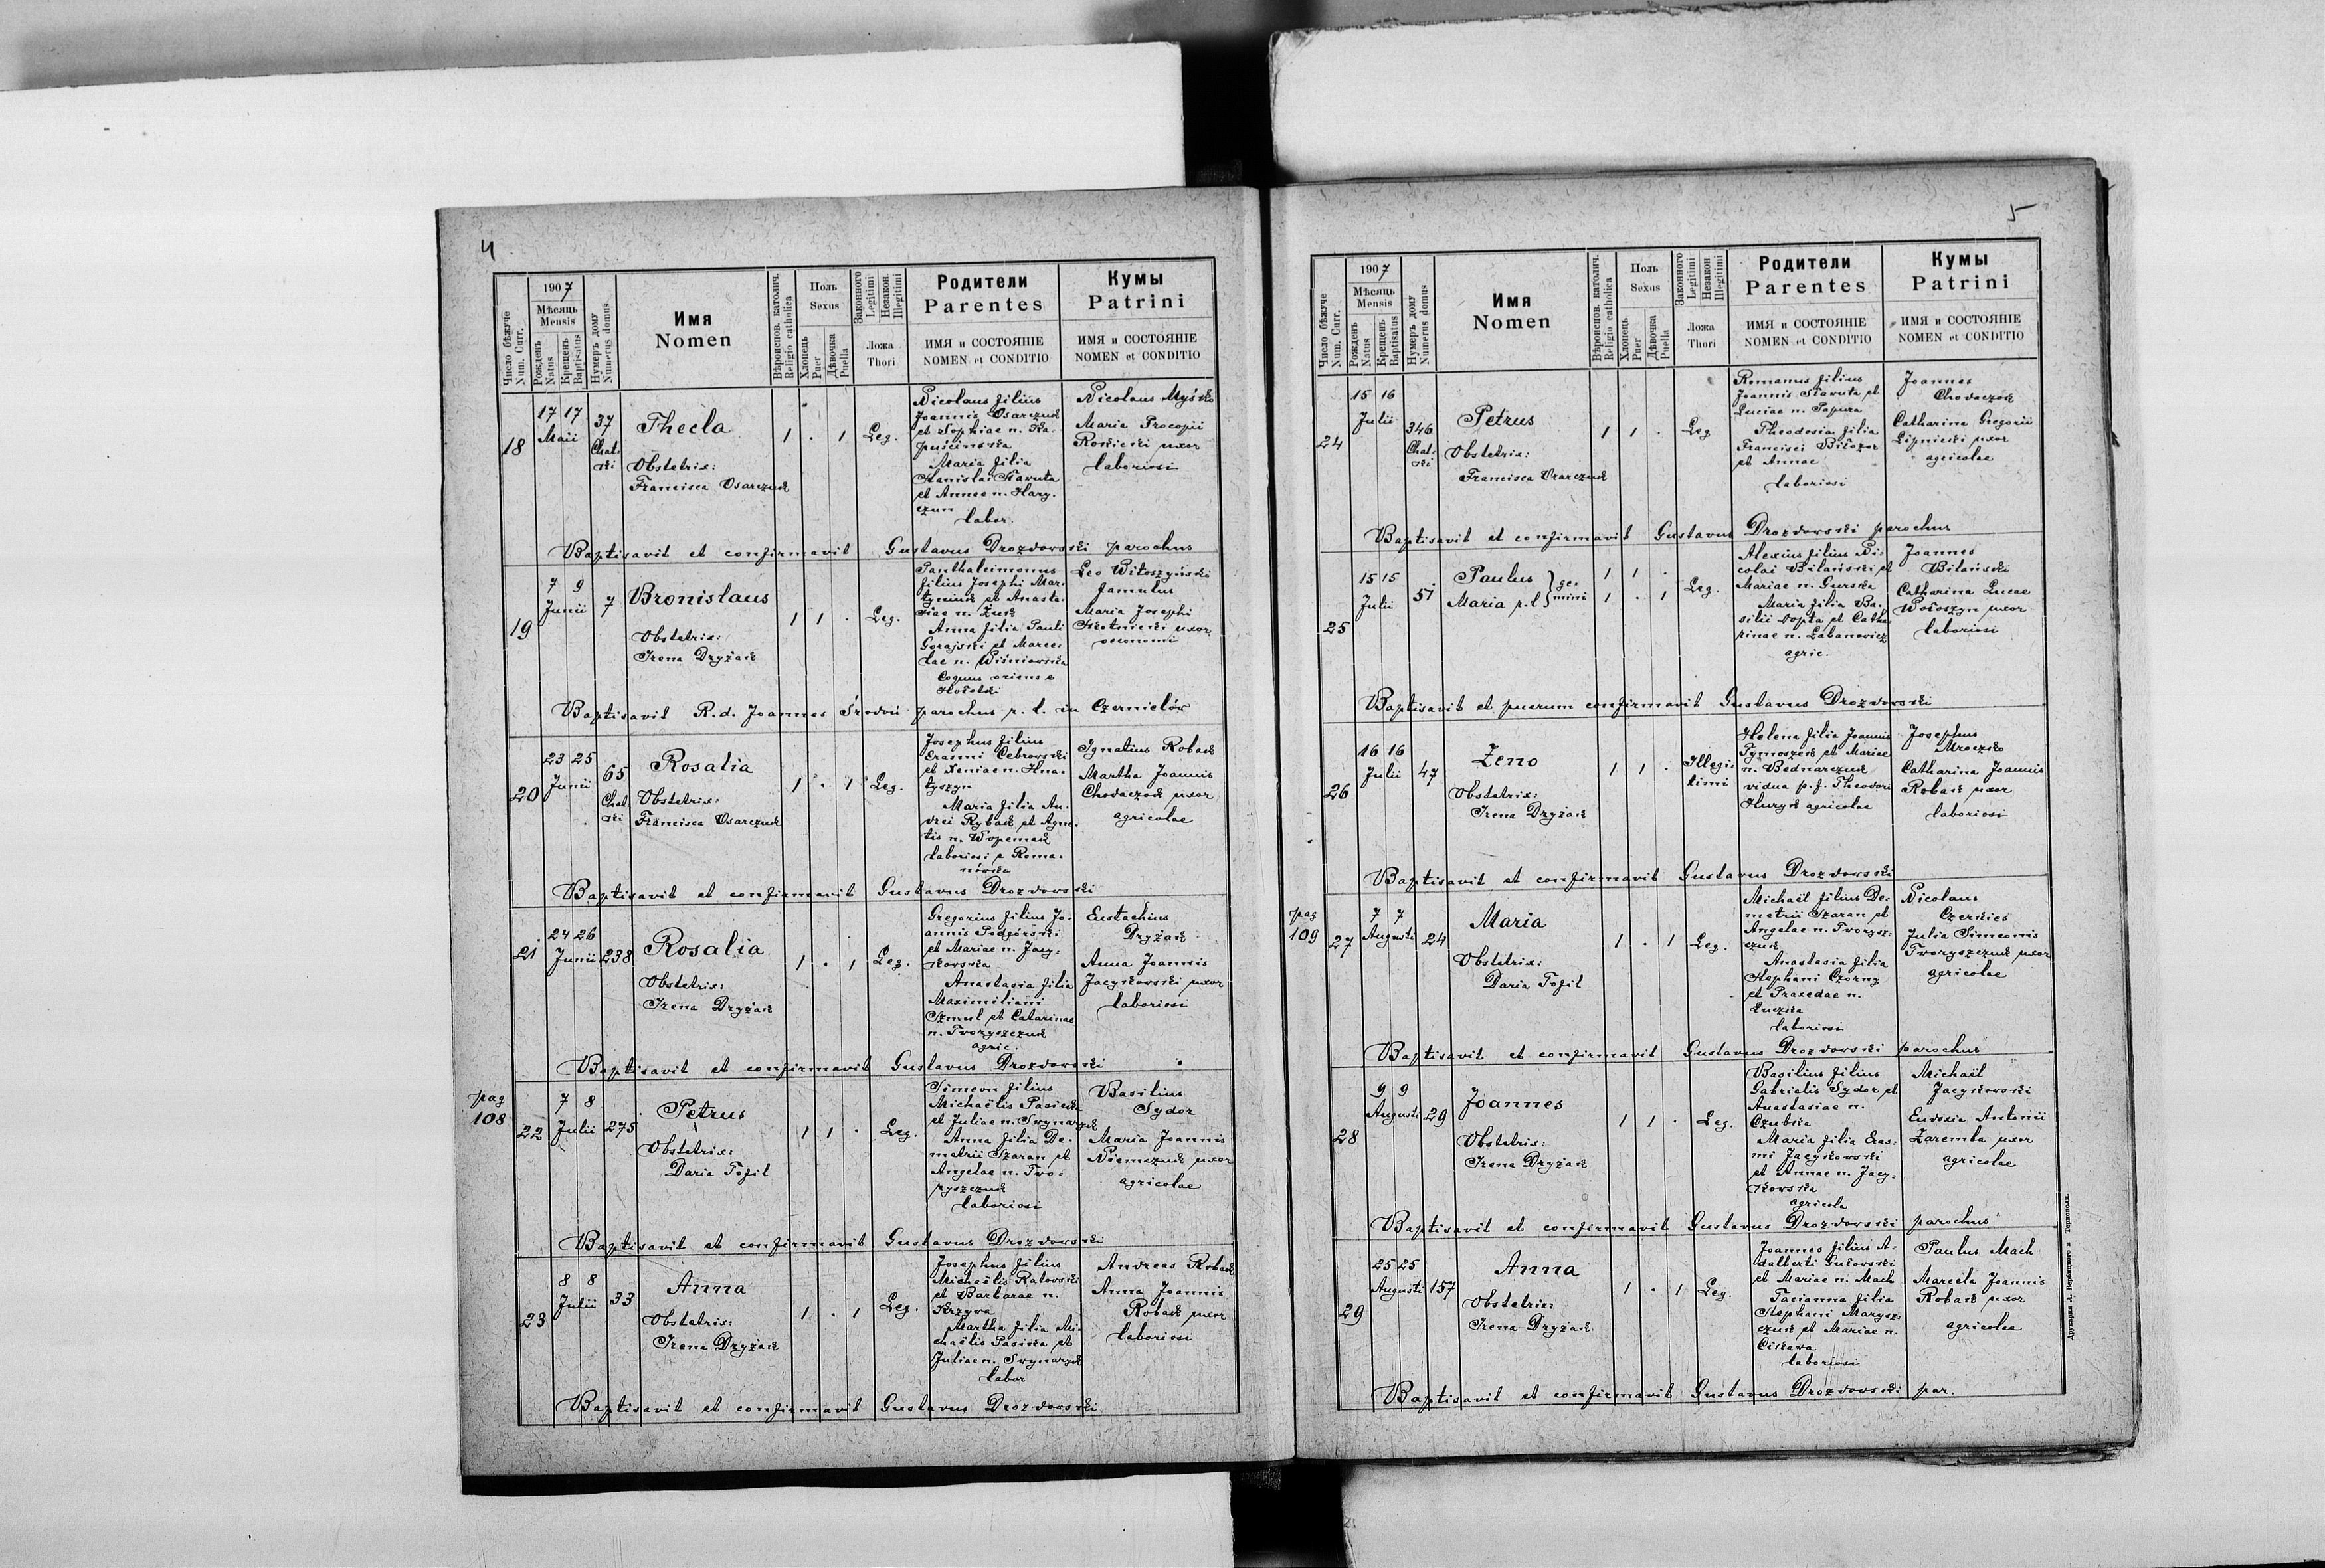 4
Число бѣжуче
Num. Curr.
1907
Мѣсяць
Mensis
Рожденъ
Natus
Крещенъ
Baptisatus
Нумеръ дому
Numerus domus
Имя
Nomen
Вѣроиспов. католич.
Religio catholica
Поль
Sexus
Хлопець
Puer
Дѣвочка
Puella
Законного
Legitimi
Незакон.
Illegitimi
Ложа
Thori
Родители
Parentes
ИМЯ и СОСТОЯНІЕ
NOMEN et CONDITIO
Кумы
Patrini
ИМЯ и СОСТОЯНІЕ
NOMEN et CONDITIO
18
17 17
Maii
37
Chat-
ki
Thecla
Obstetrix:
Francisca Osarczuk
1 . 1
Leg.
Nicolaus filius
Joannis Osarczuk
et Sophiae n. Ka-
puścińska
Maria filia
Stanislai Stawuta
et Annae n. Hary-
czun
labor.
Nicolaus Myśko
Maria Procopii
Rokicki uxor
laboriosi
Baptisavit et confirmavit Gustavus Drozdowski parochus
19
7 9
Junii
7
Bronislaus
Obstetrix:
Irena Dryżak
1 1 .
Leg.
Panthaleimonus
filius Josephi Mar-
tyniuk et Anasta-
siae n. Żuk
Anna filia Pauli
Gorajski et Marce-
lae n. Wiśniowska
Coquus oriens e
Leo Witoszyński
famulus
Maria Josephi
Skotnicki uxor
oeconomi
Baptisavit R. d. Joannes parochus r. l. in Czernielów
20
23 25
Junii
65
Chat-
ki
Rosalia
Obstetrix:
Francisca Osarczuk
1 . 1
Leg.
Josephus filius
Erasmi Cebrowski
et Xeniae n. Hna-
tyszyn
Maria filia An-
drei Rybak et Agne-
tis n.
laboriosi e Roma-
nówka
Ignatius Robak
Martha Joannis
Chodaczok uxor
agricolae
Baptisavit et confirmavit Gustavus Drozdowski
21
24 26
Junii
238
Rosalia
Obstetrix:
Irena Dryżak
1 . 1
Leg.
Gregorius filius Jo-
annis Podgórski
et Mariae n. Jacy-
kowska
Anastasia filia
Maximiliani
Szmul et Catarinae
n. Tworyszczuk
agric.
Eustachius
Dryżak
Anna Joannis
Jacykowski uxor
laboriosi
Baptisavit et confirmavit Gustavus Drozdowski
pag
108
22
7 8
Julii
275
Petrus
Obstetrix:
Daria Tofil
1 1 .
Leg.
Simeon filius
Michaëlis Pasieka
et Juliae n. Swynaryk
Anna filia De-
metrii Szaran et
Angelae n. Two-
ryszczuk
laboriosi
Basilius
Sydor
Maria Joannis
Niemczuk uxor
agricolae
Baptisavit et confirmavit Gustavus Drozdowski
23
8 8
Julii
33
Anna
Obstetrix:
Irena Dryżak
1 . 1
Leg.
Josephus filius
Michaëlis Ratowski
et Barbarae n.
Krzywa
Martha filia Mi-
chaëlis Pasieka et
Juliae n. Swynaryk
labor
Andreas Robak
Anna Joannis
Robak uxor
laboriosi
Baptisavit et confirmavit Gustavus Drozdowski
5
Число бѣжуче
Num. Curr.
1907
Мѣсяць
Mensis
Рожденъ
Natus
Крещенъ
Baptisatus
Нумеръ дому
Numerus domus
Имя
Nomen
Вѣроиспов. католич.
Religio catholica
Поль
Sexus
Хлопець
Puer
Дѣвочка
Puella
Законного
Legitimi
Незакон.
Illegitimi
Ложа
Thori
Родители
Parentes
ИМЯ и СОСТОЯНІЕ
NOMEN et CONDITIO
Кумы
Patrini
ИМЯ и СОСТОЯНІЕ
NOMEN et CONDITIO
24
15 16
Julii
346
Chat-
ki
Petrus
Obstetrix:
Francisca Osarczuk
1 1 .
Leg
Romanus filius
Joannis Stawuta et
Luciae n. Popura
Theodosia filia
Francisci Biłozor
et Annae
laboriosi
Joannes
Chodaczok
Catharina Gregorii
Lipnicki uxor
agricolae
Baptisavit et confirmavit Gustavus Drozdowski parochus
25
15 15
Julii
51
Paulus
Maria r. l. } ge-
mini
1 1 .
1 . 1
Leg.
Alexius filius Ni-
colai Bilański et
Mariae n. Gurska
Maria filia Ba-
silii Dopta et Catha-
rinae n. Labanowicz
agric.
Joannes
Bilański
Catharina Lucae
Wołoszyn uxor
laboriosi
Baptisavit et puerum confirmavit Gustavus Drozdowski
26
16 16
Julii
47
Zeno
Obstetrix:
Irena Dryżak
1 1 .
Illegi-
timi
Helena filia Joannis
Tymoszek et Mariae
n. Bednarczuk
vidua p. f. Theodori
Huryk agricolae
Josephus
Mroczko
Catharina Joannis
Robak uxor
laboriosi
Baptisavit et confirmavit Gustavus Drozdowski
pag
109
27
7 7
Augusti
24
Maria
Obstetrix:
Daria Tofil
1 . 1
Leg.
Michaël filius De-
metrii Szaran et
Angelae n. Tworysz-
czuk
Anastasia filia
Stephani Czorny
et Praxedae n.
Łuczka
laboriosi
Nicolaus
Czerkies
Julia Simeonis
Tworyszczuk uxor
agricolae
Baptisavit et confirmavit Gustavus Drozdowski parochus
28
9 9
Augusti
29
Joannes
Obstetrix:
Irena Dryżak
1 1 .
Leg.
Basilius filius
Gabrielis Sydor et
Anastasiae n.
Czubska
Maria filia Eras-
mi Jacykowski
et Annae n. Jacy-
kowska
agricola
Michaël
Jacykowski
Eudoxia Antonii
Zaremba uxor
agricolae
Baptisavit et confirmavit Gustavus Drozdowski parochus
29
25 25
Augusti
157
Anna
Obstetrix:
Irena Dryżak
1 . 1
Leg.
Joannes filius A-
dalberti Gutowski
et Mariae n. Mach
Tacianna filia
Stephani Marysz-
czuk et Mariae n.
Cikawa
laboriosi
Paulus Mach
Marcela Joannis
Robak uxor
agricolae
Baptisavit et confirmavit Gustavus Drozdowski par.
Друкарня Л. Вербицкого в Терноп